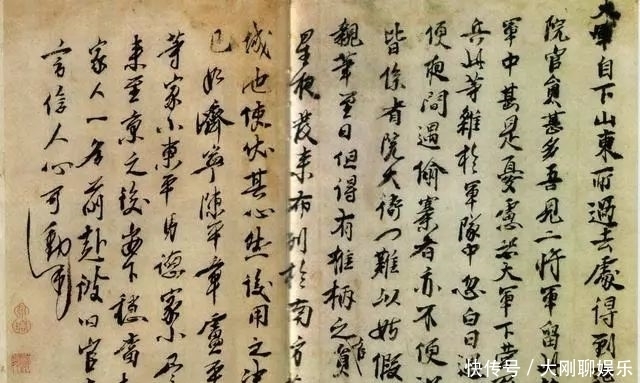 大軍自下山東所過去處得到
院官員甚多吾見二將軍留
軍中甚是憂慮恐大軍下營
兵此等雜於軍隊中忽白日
便夜間遇偷寨者亦不便
皆係省院大衙門難以姑假
親筆至日但得有權柄之官員
星夜發來布列於南方
城池使伏其心然後用之決
已如濟寧陳平章盧平
等家小東平馬德家小尽
來至京之後安下穩當
家人一名前赴彼旧官
言信人心可動
快传号/大刚聊娱乐